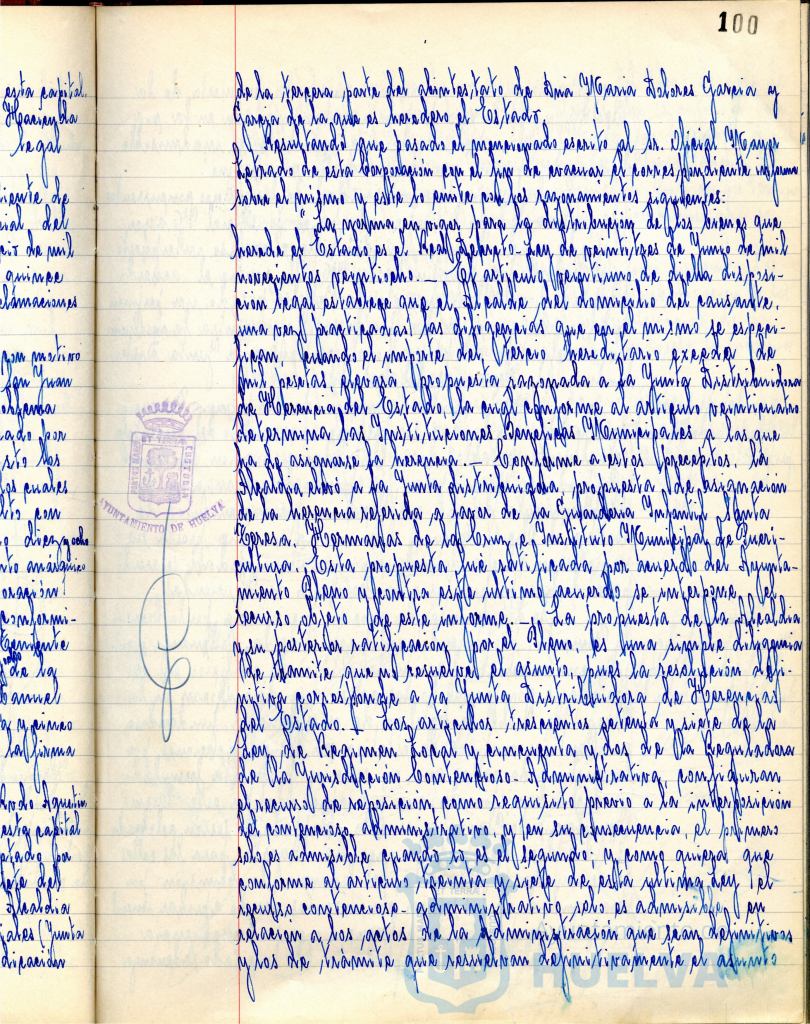 100
esta capital.
Hacienda
legal
de la tercera parte del abintestato de Dña Maria Dolores Garcia y
Garcia de la que es heredero el Estado.
Resultando que pasado el mencionado escrito al Sr. Oficial Mayor
Letrado de esta Corporación con el fin de evacuar el correspondiente informe
sobre el mismo y este lo emite con los razonamientos siguientes:
"La norma en vigor para la distribución de los bienes que
hereda el Estado es el Real Decreto-Ley de veintitres de Junio de mil
novecientos veintiocho.- El articulo veintiuno de dicha disposi-
cion legal establece que el Alcalde del domicilio del causante,
una vez practicadas las diligencias que en el mismo se especi-
fican, cuando el importe del Tercio hereditario exceda de
mil pesetas, elevará propuesta razonada a la Junta Distribuidora
de Herencia del Estado, la cual conforme al articulo veinticuatro
determina las Instituciones Benéficas Municipales a las que
ha de asignarse la herencia.- Conforme a estos preceptos, la
Alcaldia elevó a la Junta distribuidora, propuesta de asignación
de la herencia referida a favor de la Guarderia Infantil Santa
Teresa, Hermanas de la Cruz e Instituto Municipal de Pueri-
cultura. Esta propuesta fué ratificada por acuerdo del Ayunta-
miento Pleno y contra este ultimo acuerdo se interpone el
recurso objeto de este informe.- La propuesta de la Alcaldia
y su posterior ratificacion por el Pleno, es una simple diligencia
de tramite que no resuelve el asunto, pues la resolución defi-
nitiva corresponde a la Junta Distribuidora de Herencias
del Estado.- Los articulos trescientos setenta y siete de la
Ley de Regimen Local y cincuenta y dos de la Reguladora
de la Jurisdicción Contencioso-Administrativa, configuran
el recurso de reposición, como requisito previo a la interposición
del contencioso administrativo, y en su consecuencia, el primero
solo es admisible cuando lo es el segundo; y como quiera que
conforme al articulo treinta y siete de esta ultima Ley el
recurso contencioso-administrativo solo es admisible en
relacion a los actos de la administración que sean definitivos
y los de trámite que resuelvan definitivamente el asunto
AYUNTAMIENTO DE HUELVA
PORTUS MARIS ET TERRAE CUSTODIA
HUELVA